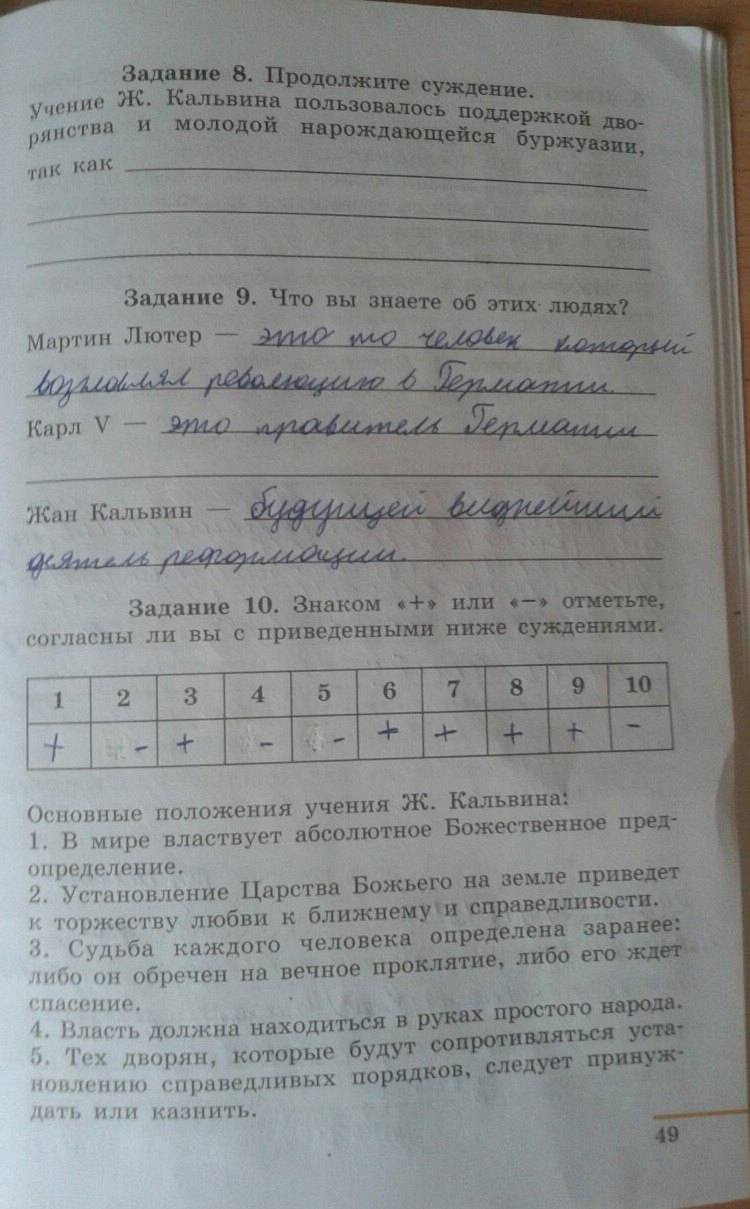 Задание 8. Продолжите суждение.
Учение Ж. Кальвина пользовалось поддержкой дво-
рянства и молодой нарождающейся буржуазии,
так как
Задание 9. Что вы знаете об этих людях?
Мартин Лютер — это то человек который
возглавлял революцию в Германии.
Карл V — это правитель Германии
Жан Кальвин — будущей виднейший
деятель реформации.
Задание 10. Знаком «+» или «−» отметьте,
согласны ли вы с приведенными ниже суждениями.
1 2 3 4 5 6 7 8 9 10
+ - + - - + + + + -
Основные положения учения Ж. Кальвина:
1. В мире властвует абсолютное Божественное пред-
определение.
2. Установление Царства Божьего на земле приведет
к торжеству любви к ближнему и справедливости.
3. Судьба каждого человека определена заранее:
либо он обречен на вечное проклятие, либо его ждет
спасение.
4. Власть должна находиться в руках простого народа.
5. Тех дворян, которые будут сопротивляться уста-
новлению справедливых порядков, следует принуж-
дать или казнить.
49